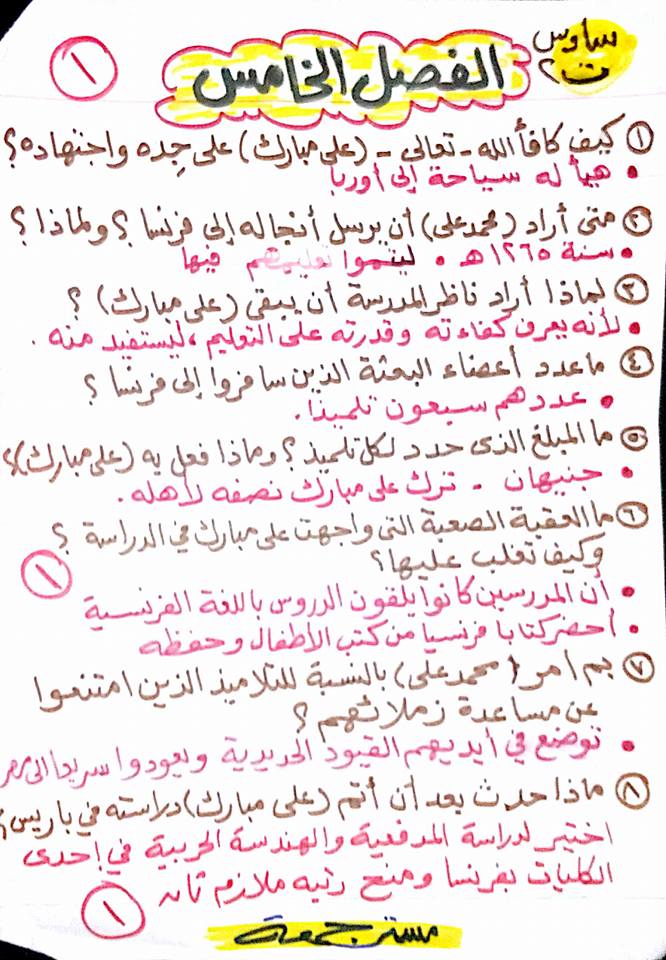 سادس
ت٢
الفصل الخامس
١
١ كيف كافأ الله - تعالى - (على مبارك) على جِده واجتهاده؟
• هيأ له سياحة إلى أوربا
٢ متى أراد (محمد على) أن يرسل أنجاله إلى فرنسا؟ ولماذا؟
• سنة ١٢٦٥هـ • ليتموا تعليمهم فيها
٣ لماذا أراد ناظر المدرسة أن يبقى (على مبارك)؟
• لأنه يعرف كفاءته وقدرته على التعليم، ليستفيد منه.
٤ ما عدد أعضاء البعثة الذين سافروا إلى فرنسا؟
• عددهم سبعون تلميذا.
٥ ما المبلغ الذى حدد لكل تلميذ؟ وماذا فعل به (على مبارك)؟
• جنيهان - ترك على مبارك نصفه لأهله.
٦ ما العقبة الصعبة التى واجهت على مبارك في الدراسة؟
وكيف تغلب عليها؟
١
• أن المدرسين كانوا يلقون الدروس باللغة الفرنسية
• أحضر كتابا فرنسيا من كتب الأطفال وحفظه
٧ بم أمر (محمد على) بالنسبة للتلاميذ الذين امتنعوا
عن مساعدة زملائهم؟
• توضع في أيديهم القيود الحديدية ويعودوا سريعا الى مصر
٨ ماذا حدث بعد أن أتم (على مبارك) دراسته في باريس؟
اختير لدراسة المدفعية والهندسة الحربية في إحدى
الكليات بفرنسا ومنح رتبه ملازم ثان
١
مستر جمعة